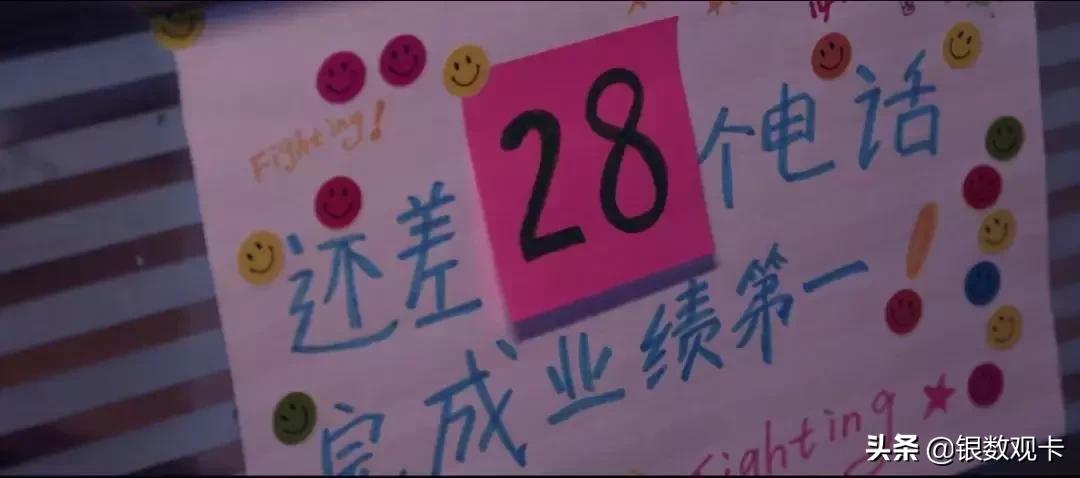 Fighting!
还差28个电话
完成业绩第一!
Fighting
头条 @银数观卡